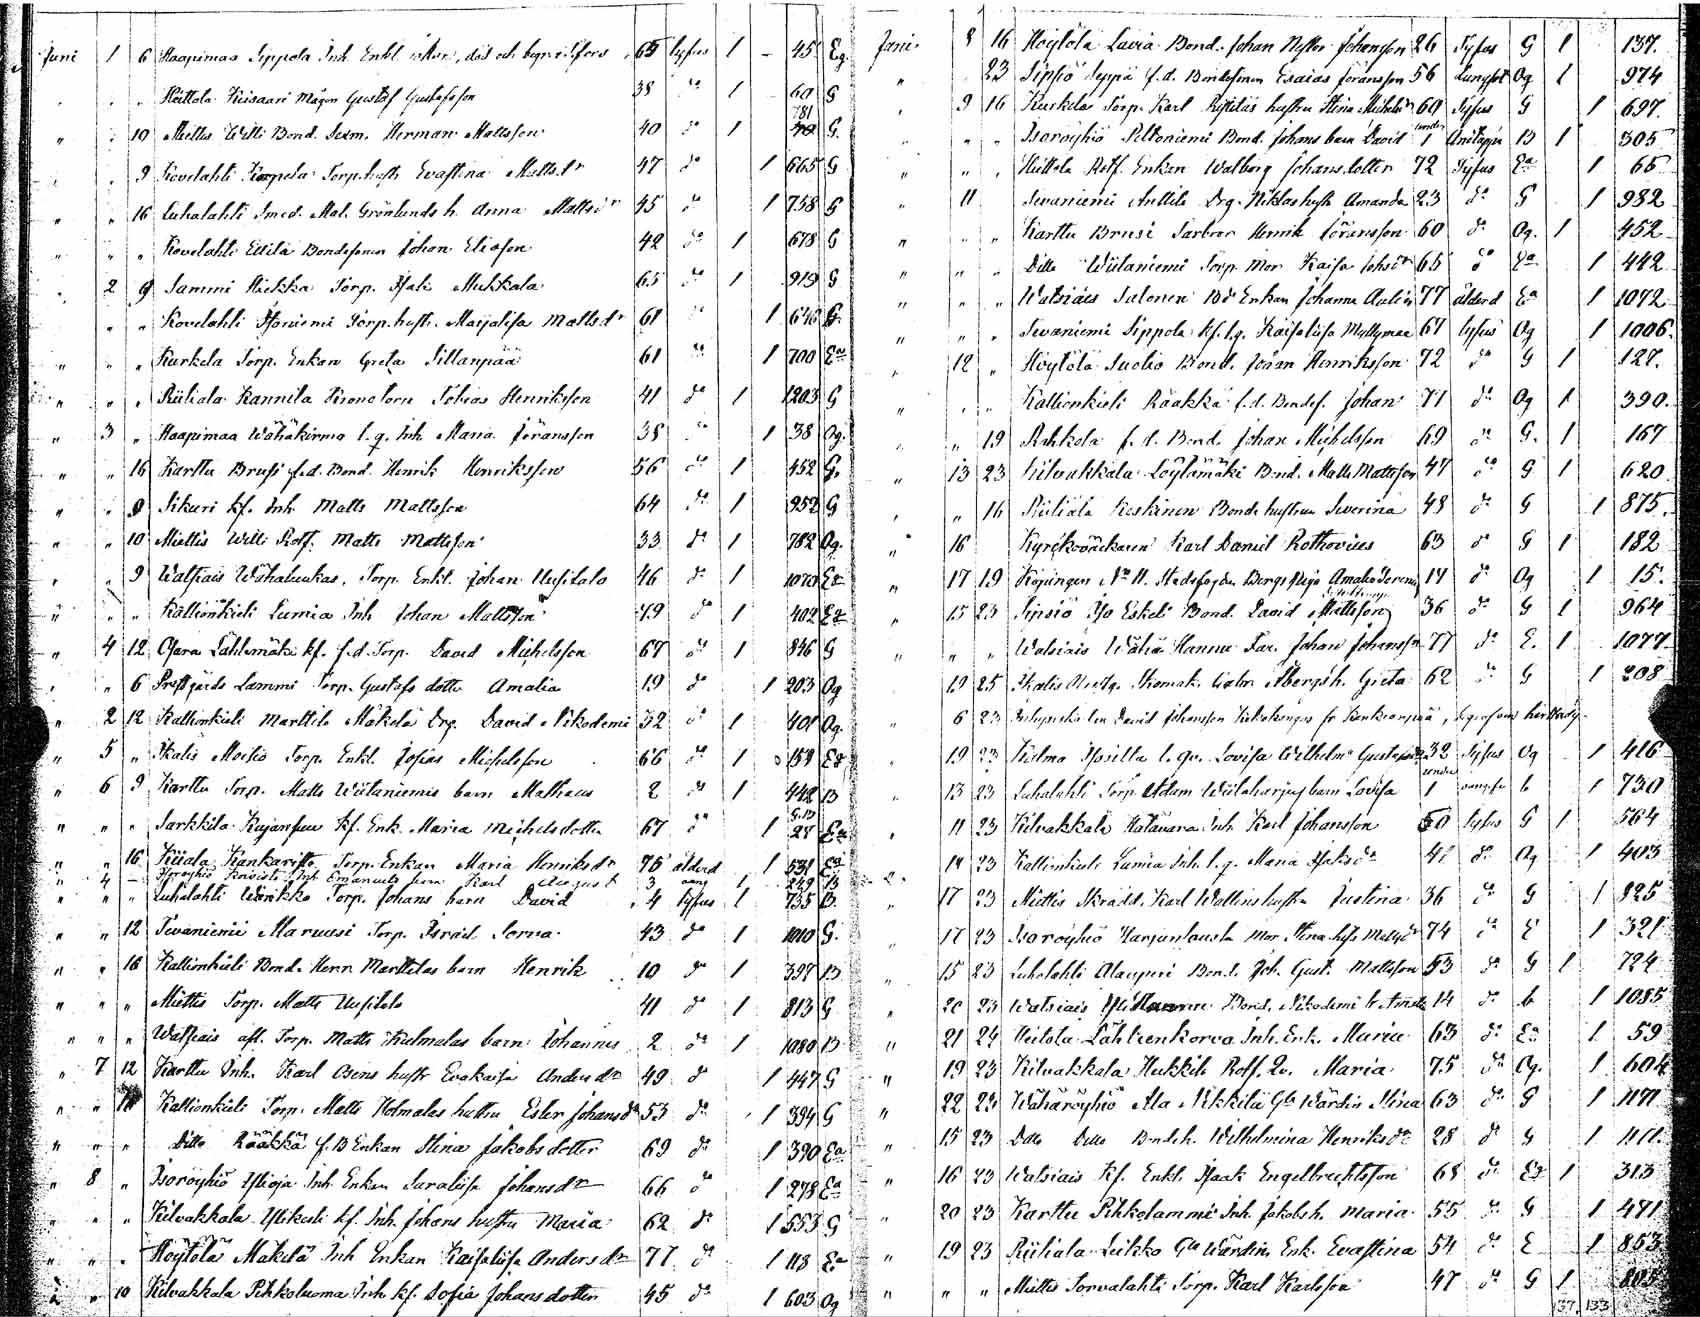 Juni 1 6 Haapimaa Sippola Inh. Enkl. död och begr. i 65 tyfus 1 45 Eg.
" " " Heittola Kiisaari Mågen Gustaf Gustafsson 38 do 1 60 G
" " 10 Miettis Willi Bond. Herman Mattsson 40 do 1 781 G.
" " 9 Kovelahti Torp. hustr. Evastina Mattsdr 47 do 1 665 G
" " 16 Luhalahti Smed. Mat. Grönlunds h. Anna Mattsdr 45 do 1 758 G
" " " Kovelahti Ettilä Bondesonen Johan Eliasson 42 do 1 678 G
" 2 9 Sammi Hiekka Torp. Isak Mukkala 65 do 1 919 G
" " " Kovelahti Isoniemi Torp. hustr. Majalisa Mattsdr 61 do 1 646 G.
" " " Kurkela Torp. Enkan Greta Sillanpää 61 do 1 700 Ea
" " " Riiliala Kannila Kronotorp Tobias Henriksson 41 do 1 1203 G
" 3 " Haapimaa Wähäkirma l. q. Inh. Maria Jöransson 38 do 1 38 Og.
" " 16 Karttu Brusi f.d. Bond. Henrik Henriksson 56 do 1 452 G.
" " 9 Sikuri kf. Inh. Matts Mattsson 64 do 1 952 G
" " 10 Miettis Willi Rotf. Matts Mattsson 33 do 1 782 Og.
" " 9 Watsiais Wähäluukas, Torp. Enkl. Johan Uusitalo 46 do 1 1070 Eg
" " " Kallionkieli Lumia Inh. Johan Mattsson 49 do 1 402 Eg
" 4 12 Ojara Lähtemäki kf. f.d. Torp. David Michelsson 67 do 1 846 G
" " 6 Prestgårds Lammi Torp. Gustafs dotter Amalia 19 do 1 203 Og
" 2 12 Kallionkieli Marttila Mäkelä Drg. David Nikodemi 32 do 1 401 Og.
" 5 " Ikalis Moisio Torp. Enkl. Josias Michelsson 66 do 1 154 Eg
" 6 9 Karttu Torp. Matts Wiitaniemis barn Matheus 2 do 1 442 B
" " " Sarkkila Kujanpuu kf. Enk. Maria Michelsdotter 67 do 1 27 Ea
" " 16 Kiiala Kankaristo Torp. Enkan Maria Henriksdr 75 ålderd 1 531 Ea
" 4 — Isoröyhiö Koivisto Inh. Emanuels barn Karl August 3 1 249 B
" " " Luhalahti Wärikko Torp. Johans barn David 4 tyfus 1 735 B.
" " 12 Tevaniemi Maruusi Torp. Israel Sorva 43 do 1 1010 G.
" " 16 Kallionkieli Bond. Herm. Marttilas barn Henrik 10 do 1 397 B
" " " Miettis Torp. Matts Uusitalo 41 do 1 813 G
" " " Watsiais afl. Torp. Matts Kulmalas barn Johannes 2 do 1 1080 B
" 7 12 Karttu Inh. Karl Osens hustr Evakaisa Andersdr 49 do 1 447 G
" " 10 Kallionkieli Torp. Matts Holmalas hustru Ester Johansdr 53 do 1 394 G
" " " Ditto Rääkkä f.B Enkan Stina Jakobsdotter 69 do 1 390 Ea
" 8 " Isoröyhiö Ylioja Inh. Enkan Saralisa Johansdr 66 do 1 278 Ea
" " " Kilvakkala Ylikesti kf. Inh. Johans hustru Maria 62 do 1 553 G
" " " Höytölä Mäkelä Inh Enkan Kaisalisa Andersdr 77 do 1 113 Ea
" " 10 Kilvakkala Pikkuluoma Inh kf. Sofia Johansdotter 45 do 1 603 Og
Juni 8 16 Höytölä Lavia Bond. Johan Nestor Johansson 26 Tyfus G 1 137.
" 23 Sipsiö Seppä f.d. Bondesonen Esaias Jöransson 56 Lungsot Og 1 974
" 9 16 Kurkela Torp. Karl hustru Stina Michelsdr 60 Tyfus G 1 697.
" " " Isoröyhiö Peltoniemi Bond. Johans barn David under 1 Andtäppa B 1 305
" " " Heittola Rotf. Enkan Walborg Johansdotter 72 Tyfus Ea 1 66
" 11 Tevaniemi Anttila Drg. Niklas hustr Amanda 23 do G 1 982
" " " Karttu Brusi Farbror Henrik Jöransson 60 do Og. 1 452
" " " Ditto Wiitaniemi Torp. Mor Kaisa Johsdr 65 do Ea 1 442
" " " Watsiais Salonen Bds Enkan Johanna 77 ålderd Ea 1 1072
" " " Tevaniemi Sippola kf. l. q. Kaisalisa Myllymaa 67 tyfus Og 1 1006.
" 12 " Höytölä Suolio Bond. Johan Henriksson 72 do G 1 127.
" " " Kallionkieli Rääkkä f.d. Bondes. Johan 71 do Og 1 390.
" " 19 Rahkola f.d. Bond. Johan Michelsson 69 do G. 1 167
" 13 23 Kilvakkala Löytämäki Bond. Matts Mattsson 47 do G 1 620
" " 16 Riiliala Keskinen Bonde hustrun Severina 48 do G 1 875.
" 16 Kyrckoväcktaren Karl Daniel Rothovius 63 do G 1 182
" 17 19 Köpingen No 11. Stadsfogden Bergs piga Amalia 14 do Og 1 15.
" 15 23 Sipsiö Iso Eskeli Bond. David Mattsson 36 do G 1 964
" " " Watsiais Wähä Hannu Far. Johan Johansson 77 do E. 1 1077
" 19 25 Ikalis Skomak. Åbergs h. Greta 62 do G 1 208
" 6 23 David Johansson Kankaanpää, begrafven härstädes.
" 19 23 Kilma Isosilta l. qv. Lovisa Wilhelma Gustafsdr 32 Tyfus Og 1 416
" 13 23 Luhalahti Torp. Adam Wiitaharjus barn Lovisa under 1 b 1 730
" 11 23 Kilvakkala Katavara Inh. Karl Johansson 50 tyfus G 1 564
" 14 23 Kallionkieli Lumia Inh. l. q. Maria Isaksdr 41 do Og 1 403
" 17 23 Miettis Skrädd. Karl Wallins hustru Justina 36 do G 1 825
" 17 23 Isoröyhiö Harjunlausta Mor Stina Mattsdr 74 do E 1 321
" 15 23 Luhalahti Alaupuri Bond. Joh. Gust. Mattsson 53 do G 1 724
" 20 23 Watsiais Bond. Nikodemi 14 do b 1 1085
" 21 24 Heitola Lähteenkorva Inh. Enk. Maria 63 do Ea 1 59
" 19 23 Kilvakkala Heikkilä Rotf. Qv. Maria 75 do Og. 1 604
" 22 23 Wähäröyhiö Ala Nikkilä Gla Wärdin Stina 63 do G 1 1171
" 15 23 Ditto Ditto Bonde h. Wilhelmina Henriksdr 28 do G 1
" 16 23 Watsiais kf. Enkl. Isaak Engelbrechtsson 68 do Eg 1 313
" 20 23 Karttu Pikkulammi Inh. Jakobs h. Maria 55 do G 1 471
" 19 23 Riiliala Leikko Gla Wärdin Enk. Evastina 54 do E 1 853
" " " Miettis Sorvalahti Torp. Karl Karlsson 47 do G 1 805
137. 133